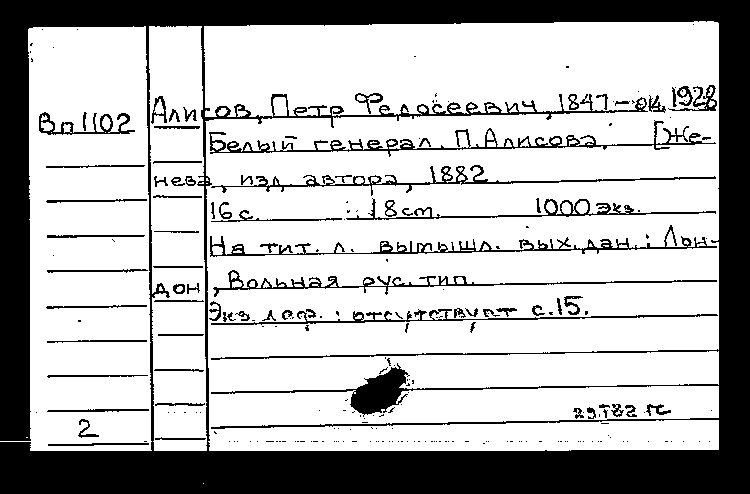 Вп1102
Алисов, Петр Федосеевич, 1847–ок. 1928
Белый генерал. П. Алисова. [Же-
нева, изд. автора, 1882.
16 с. 18 cm. 1000 экз.
На тит. л. вымышл. вых. дан.: Лон-
дон, Вольная рус. тип.
Экз. деф.: отсутствует с. 15.
2